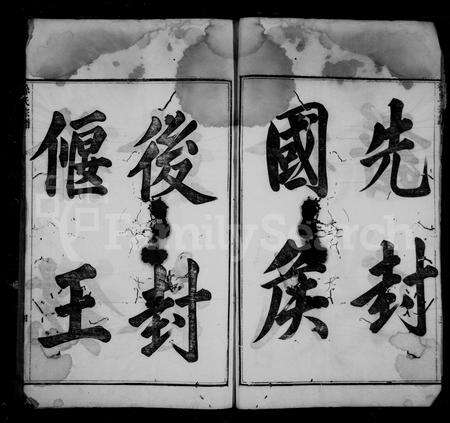 先封
國侯
後封
偃王
FamilySearch